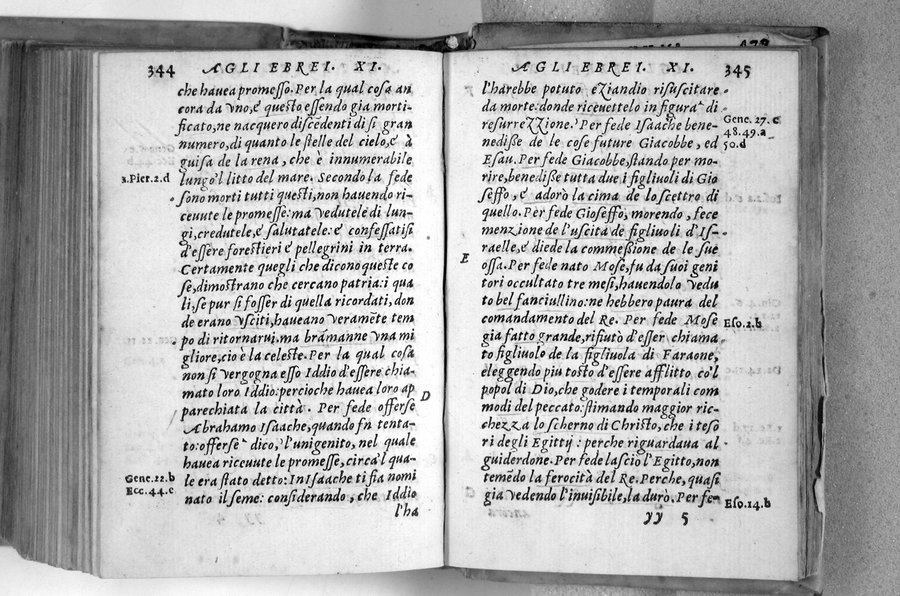 344
AGLI EBREI. XI.
che hauea promesso. Per la qual cosa an
cora da vno, e questo essendo gia morti-
ficato, ne nacquero discẽdenti di si gran
numero, di quanto le stelle del cielo, e à
guisa de la rena, che è innumerabile
3.Pier.2.d
lungo'l litto del mare. Secondo la fede
sono morti tutti questi, non hauendo ri-
ceuute le promesse: ma vedutele di lun-
gi, credutele, e salutatele: e confessatisi
d'essere forestieri e pellegrini in terra.
Certamente quegli che dicono queste co
se, dimostrano che cercano patria: i qua
li, se pur si fosser di quella ricordati, don
de erano vsciti, haueano veramẽte tem
po di ritornarui, ma bramanne vna mi
gliore, cio è la celeste. Per la qual cosa
non si vergogna esso Iddio d'essere chia-
mato loro Iddio: percioche hauea loro ap
D
parechiata la città. Per fede offerse
Abrahamo Isaache, quando fu tenta-
to: offerse dico, l'unigenito, nel quale
hauea riceuute le promesse, circa'l qua-
Gene.22.b
le era stato detto: In Isaache ti fia nomi
Ecc.44.c
nato il seme: considerando, che Iddio
l'ha
AGLI EBREI. XI.
345
l'harebbe potuto eziandio risuscitare
da morte: donde riceuettelo in figura di
Gene.27.e
resurrezzione. Per fede Isaache bene-
48.49.a
nedisse de le cose future Giacobbe, ed
50.d
Esau. Per fede Giacobbe, stando per mo-
rire, benedisse tutta due i figliuoli di Gio
seffo, e adorò la cima de lo scettro di
quello. Per fede Gioseffo, morendo, fece
menzione de l'uscita de figliuoli d'Is-
raelle, e diede la commessione de le sue
E
ossa. Per fede nato Mose, fu da suoi geni
tori occultato tre mesi, hauendolo vedu
to bel fanciullino: ne hebbero paura del
comandamento del Re. Per fede Mose
Eso.2.b
gia fatto grande, rifiutò d'esser chiama
to figliuolo de la figliuola di Faraone,
eleggendo piu tosto d'essere afflitto co'l
popol di Dio, che godere i temporali com
modi del peccato: stimando maggior ric-
chezza lo scherno di Christo, che i teso
ri degli Egittij: perche riguardaua al
guiderdone. Per fede lasciò l'Egitto, non
temẽdo la ferocità del Re. Perche, quasi
gia vedendo l'inuisibile, la durò. Per fe-
Eso.14.b
yy 5